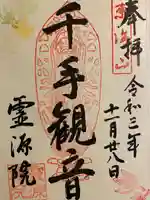 奉拝
令和三年
十一月廿八日
千手観音
霊源院